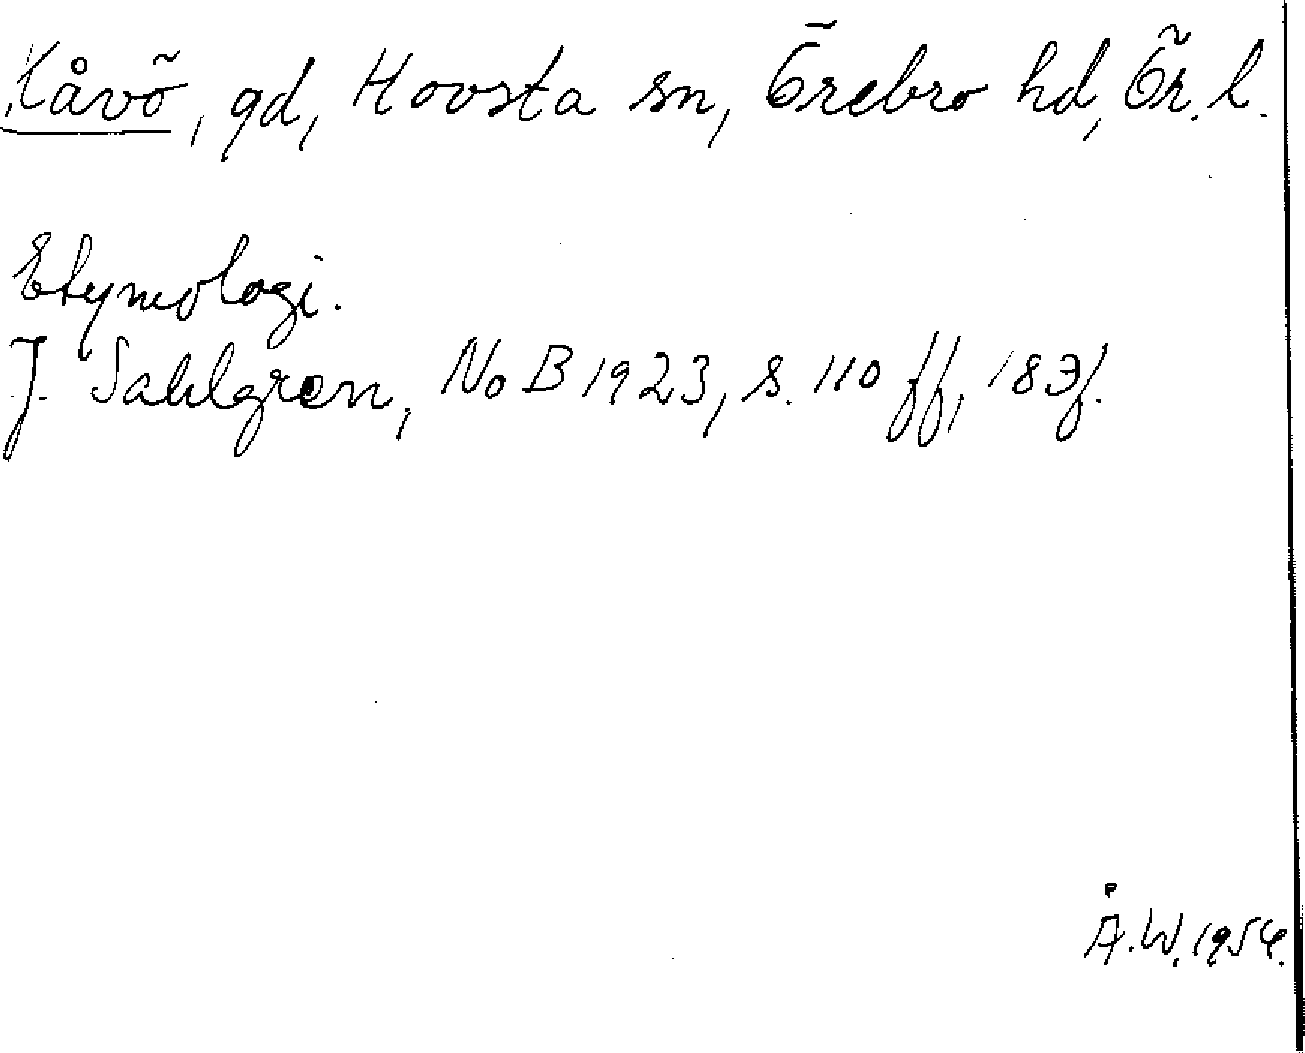 Kåvö, gd, Hovsta sn, Örebro hd, Ör. l.
Etymologi.
J. Sahlgren, NoB 1923, s. 110 ff, 183f.
Å.W. 1954.